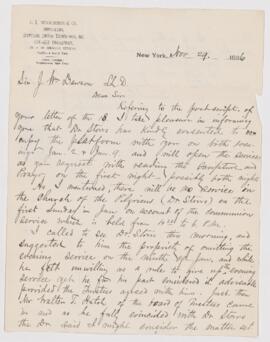 New York, Nov 29 1886
Sir J. Wm Dawson LL.D
Dear Sir
Referring to the postscript of
your letter of the 13 I take pleasure in informing
you that Dr Storrs has kindly consented to
occupy the platform with you on both
Jan. 2 & Jan 9 and will open the services
as you request with reading the Scripture and
Prayer on the first night possibly both nights
As I mentioned, there will be no service in
the Church of the Pilgrims (Dr Storrs) on the
first Sunday in Jan on account of the communion
service which is held from
I called to see Dr Storrs this morning, and
suggested to him the propriety of omitting the
evening service on the ninth of Jan, and while
he felt unwilling as a rule to give up evening
service yet he for his part considered it advisable
provided the Trustees agreed with him. Just then
Mr Walter T. Hatch of the board of Trustees came
in and as he fully coincided with Dr Storrs
the Dr. said I might consider the matter set